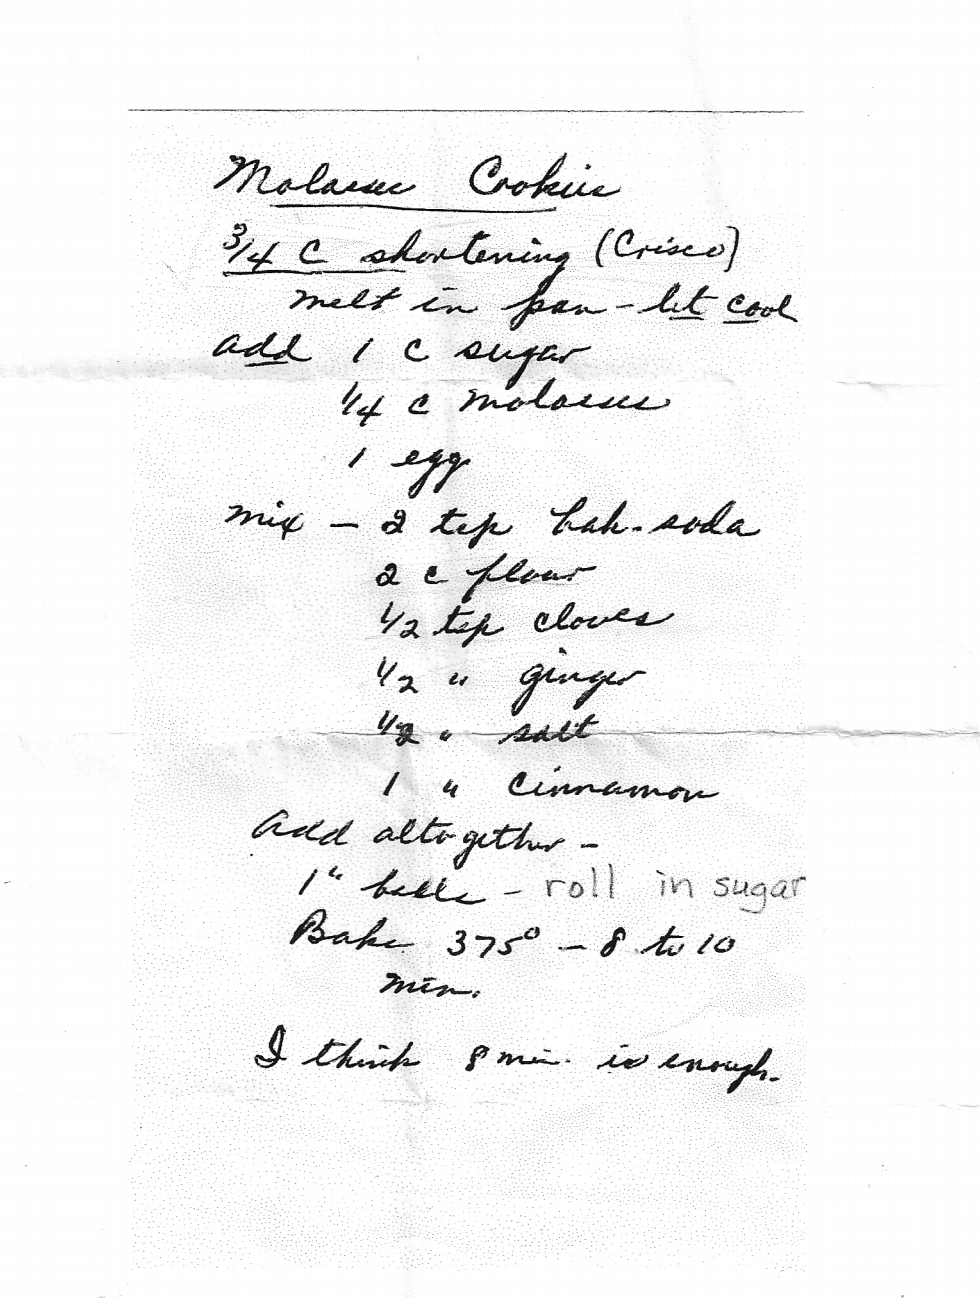 Molasses Cookies
3/4 C shortening (Crisco)
melt in pan - let cool
add 1 C sugar
1/4 C molasses
1 egg
mix - 2 tsp bak. soda
2 C flour
1/2 tsp cloves
1/2 " ginger
1/2 " salt
1 " cinnamon
Add altogether -
1" balls - roll in sugar
Bake 375° - 8 to 10
min.
I think 8 min. is enough.